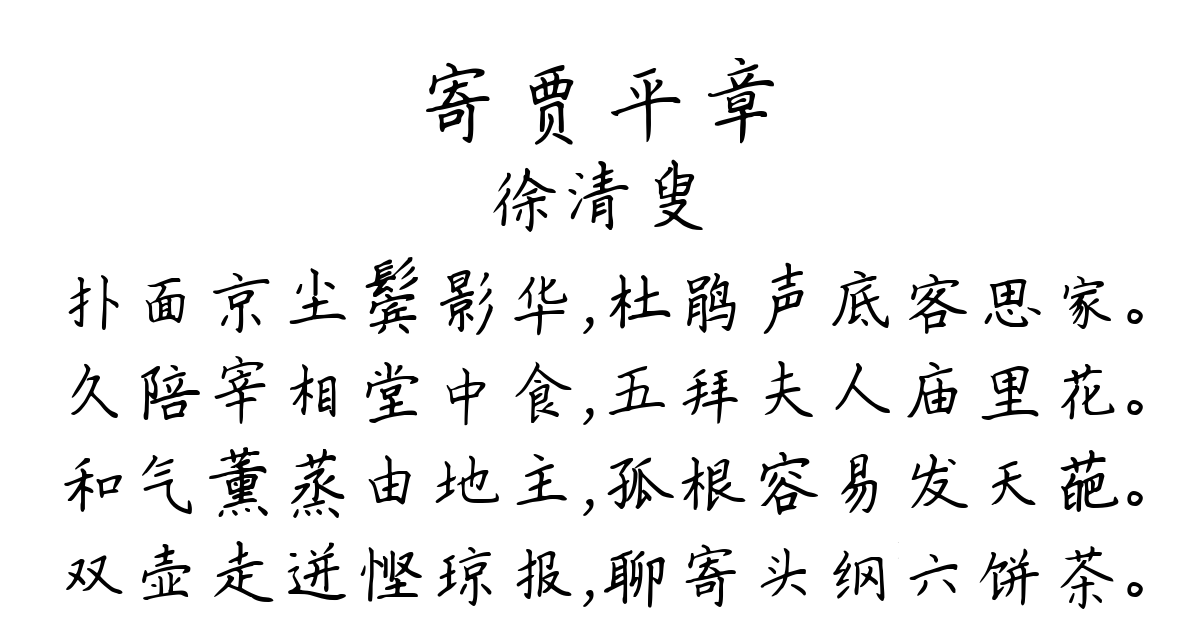 寄贾平章
徐清叟
扑面京尘鬓影华,杜鹃声底客思家。
久陪宰相堂中食,五拜夫人庙里花。
和气薰蒸由地主,孤根容易发天葩。
双壶走迸悭琼报,聊寄头纲六饼茶。